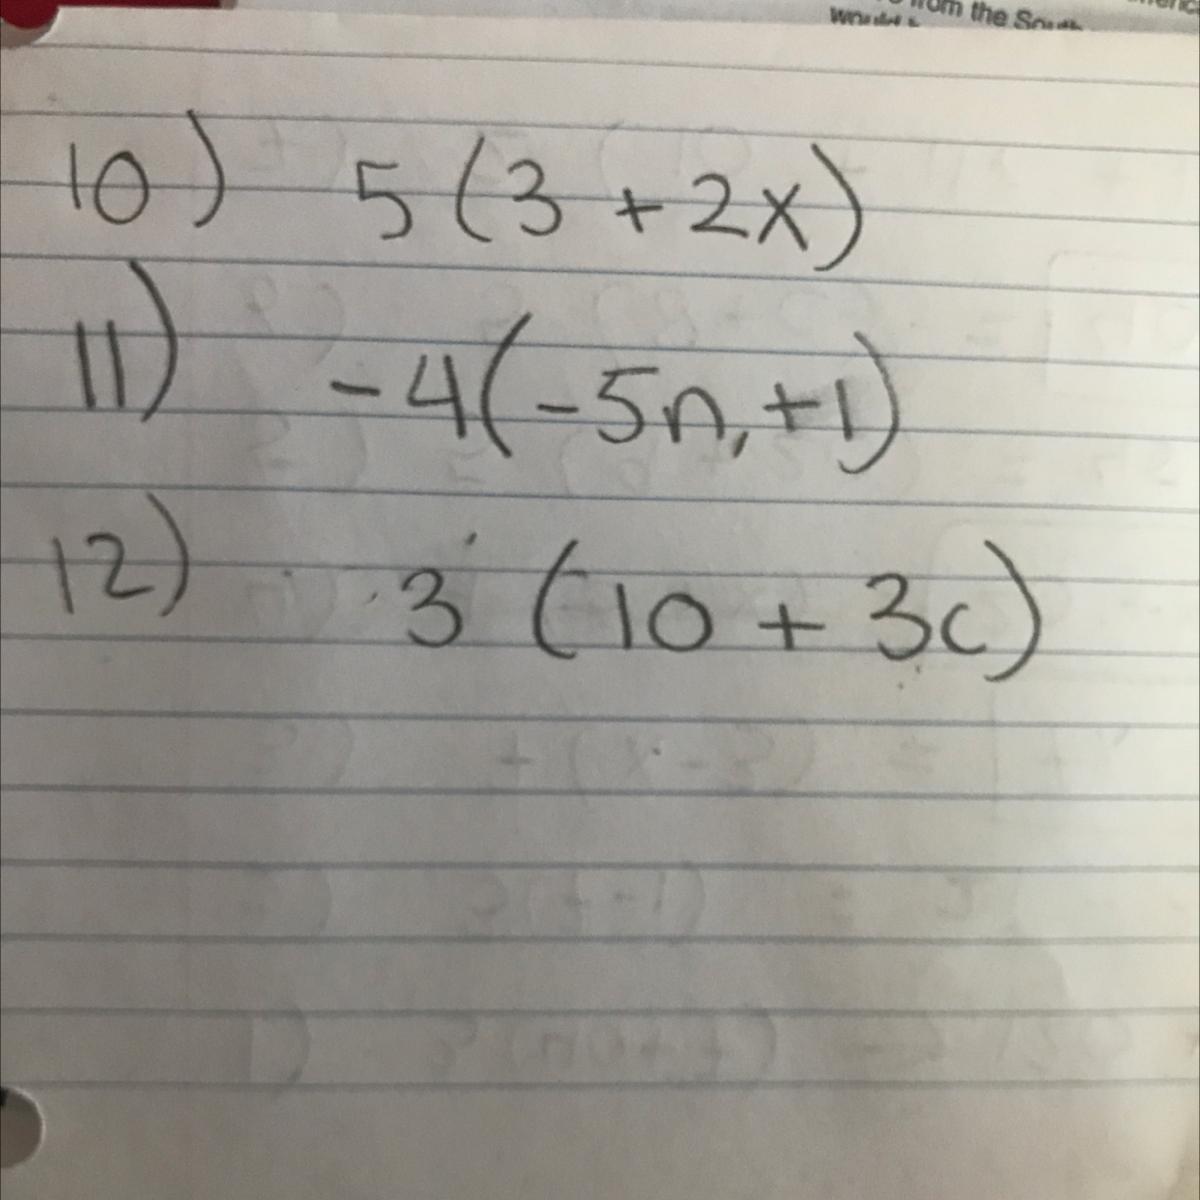 from the South
10) 5(3 + 2x)
11) -4(-5n, +1)
12) 3 (10 + 3c)